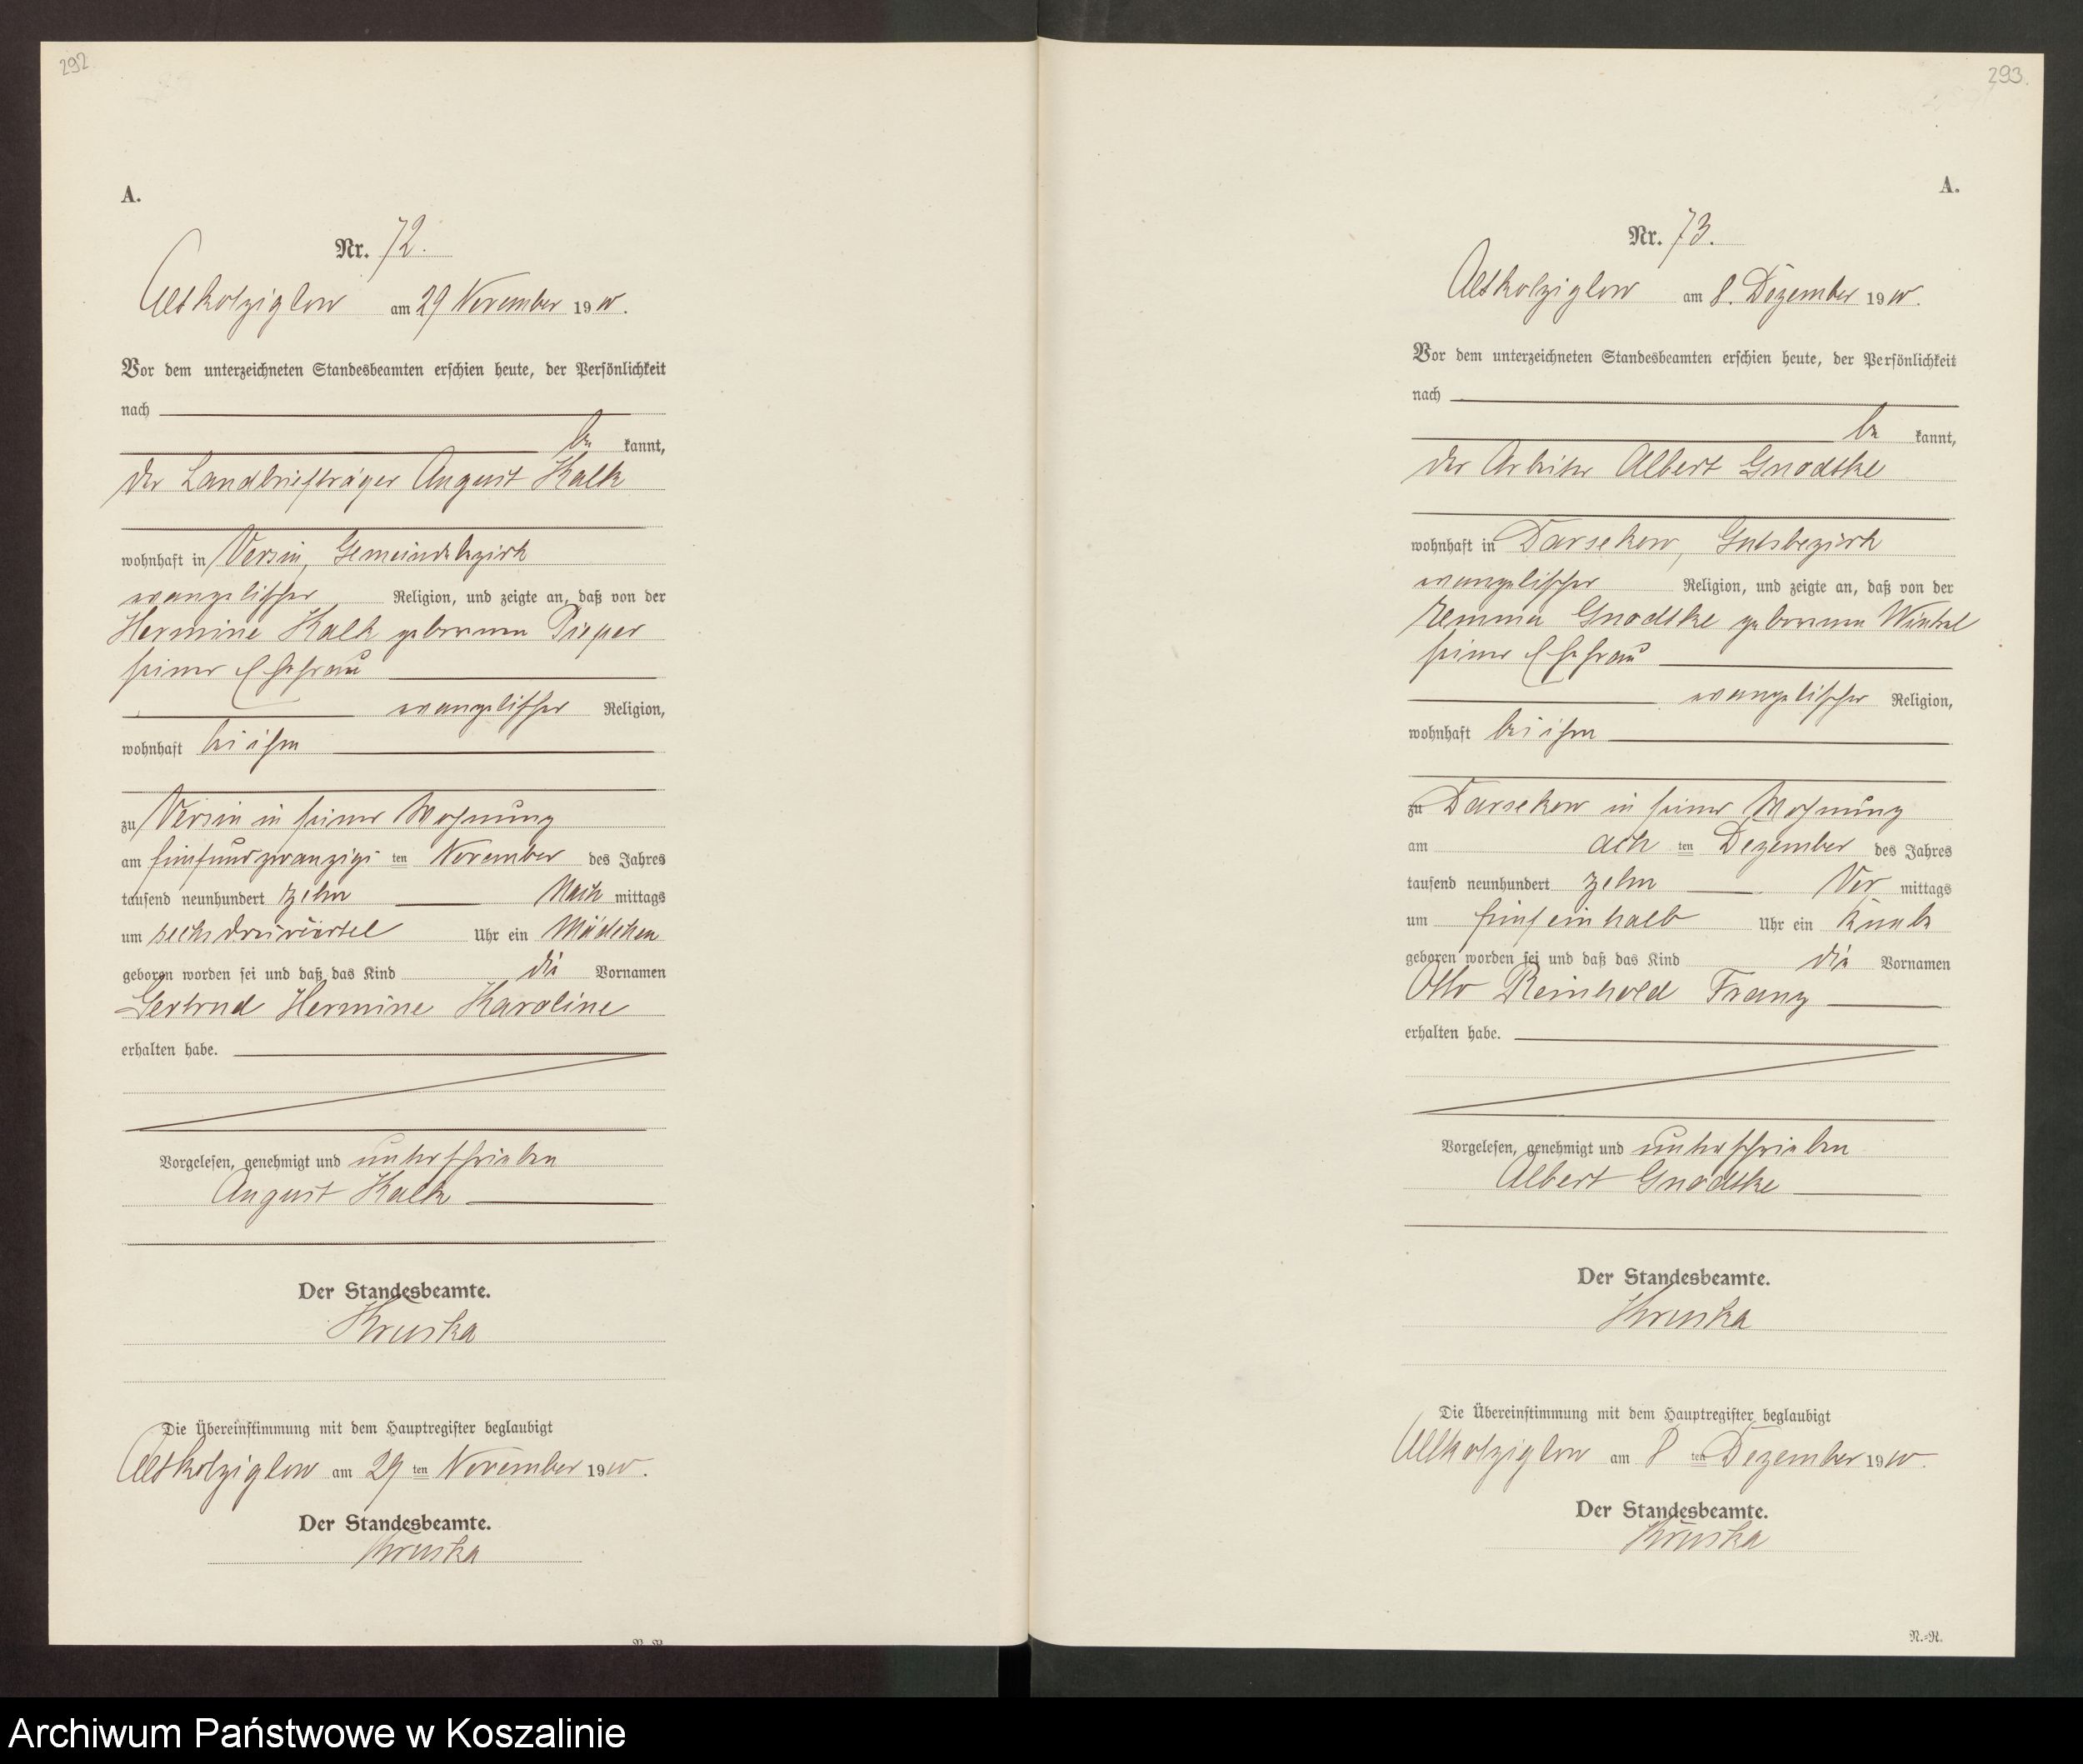 292
A.
Nr. 72.
Altkolziglow am 29 November 1910.
Vor dem unterzeichneten Standesbeamten erschien heute, der Persönlichkeit
nach
be kannt,
der Landbriefträger August Kalk
wohnhaft in Versin, Gemeindebezirk
evangelischer Religion, und zeigte an, daß von der
Hermine Kalk geborenen Pieper
seiner Ehefrau
evangelischer Religion,
wohnhaft bei ihm
zu Versin in seiner Wohnung
am fünfundzwanzigs ten November des Jahres
tausend neunhundert zehn Nach mittags
um sechs dreiviertel Uhr ein Mädchen
geboren worden sei und daß das Kind die Vornamen
Gertrud Hermine Karoline
erhalten habe.
Vorgelesen, genehmigt und unterschrieben
August Kalk
Der Standesbeamte.
Kruska
Die Übereinstimmung mit dem Hauptregister beglaubigt
Altkolziglow am 29 ten November 1910.
Der Standesbeamte.
Kruska
293.
A.
Nr. 73.
Altkolziglow am 8. Dezember 1910.
Vor dem unterzeichneten Standesbeamten erschien heute, der Persönlichkeit
nach
be kannt,
der Arbeiter Albert Gnodtke
wohnhaft in Darsekow, Gutsbezirk
evangelischer Religion, und zeigte an, daß von der
Emma Gnodtke geborenen Winkel
seiner Ehefrau
evangelischer Religion,
wohnhaft bei ihm
zu Darsekow in seiner Wohnung
am ach ten Dezember des Jahres
tausend neunhundert zehn Vor mittags
um fünfeinhalb Uhr ein Knabe
geboren worden sei und daß das Kind die Vornamen
Otto Reinhold Franz
erhalten habe.
Vorgelesen, genehmigt und unterschrieben
Albert Gnodtke
Der Standesbeamte.
Kruska
Die Übereinstimmung mit dem Hauptregister beglaubigt
Altkolziglow am 8 ten Dezember 1910.
Der Standesbeamte.
Kruska
N.-R.
Archiwum Państwowe w Koszalinie